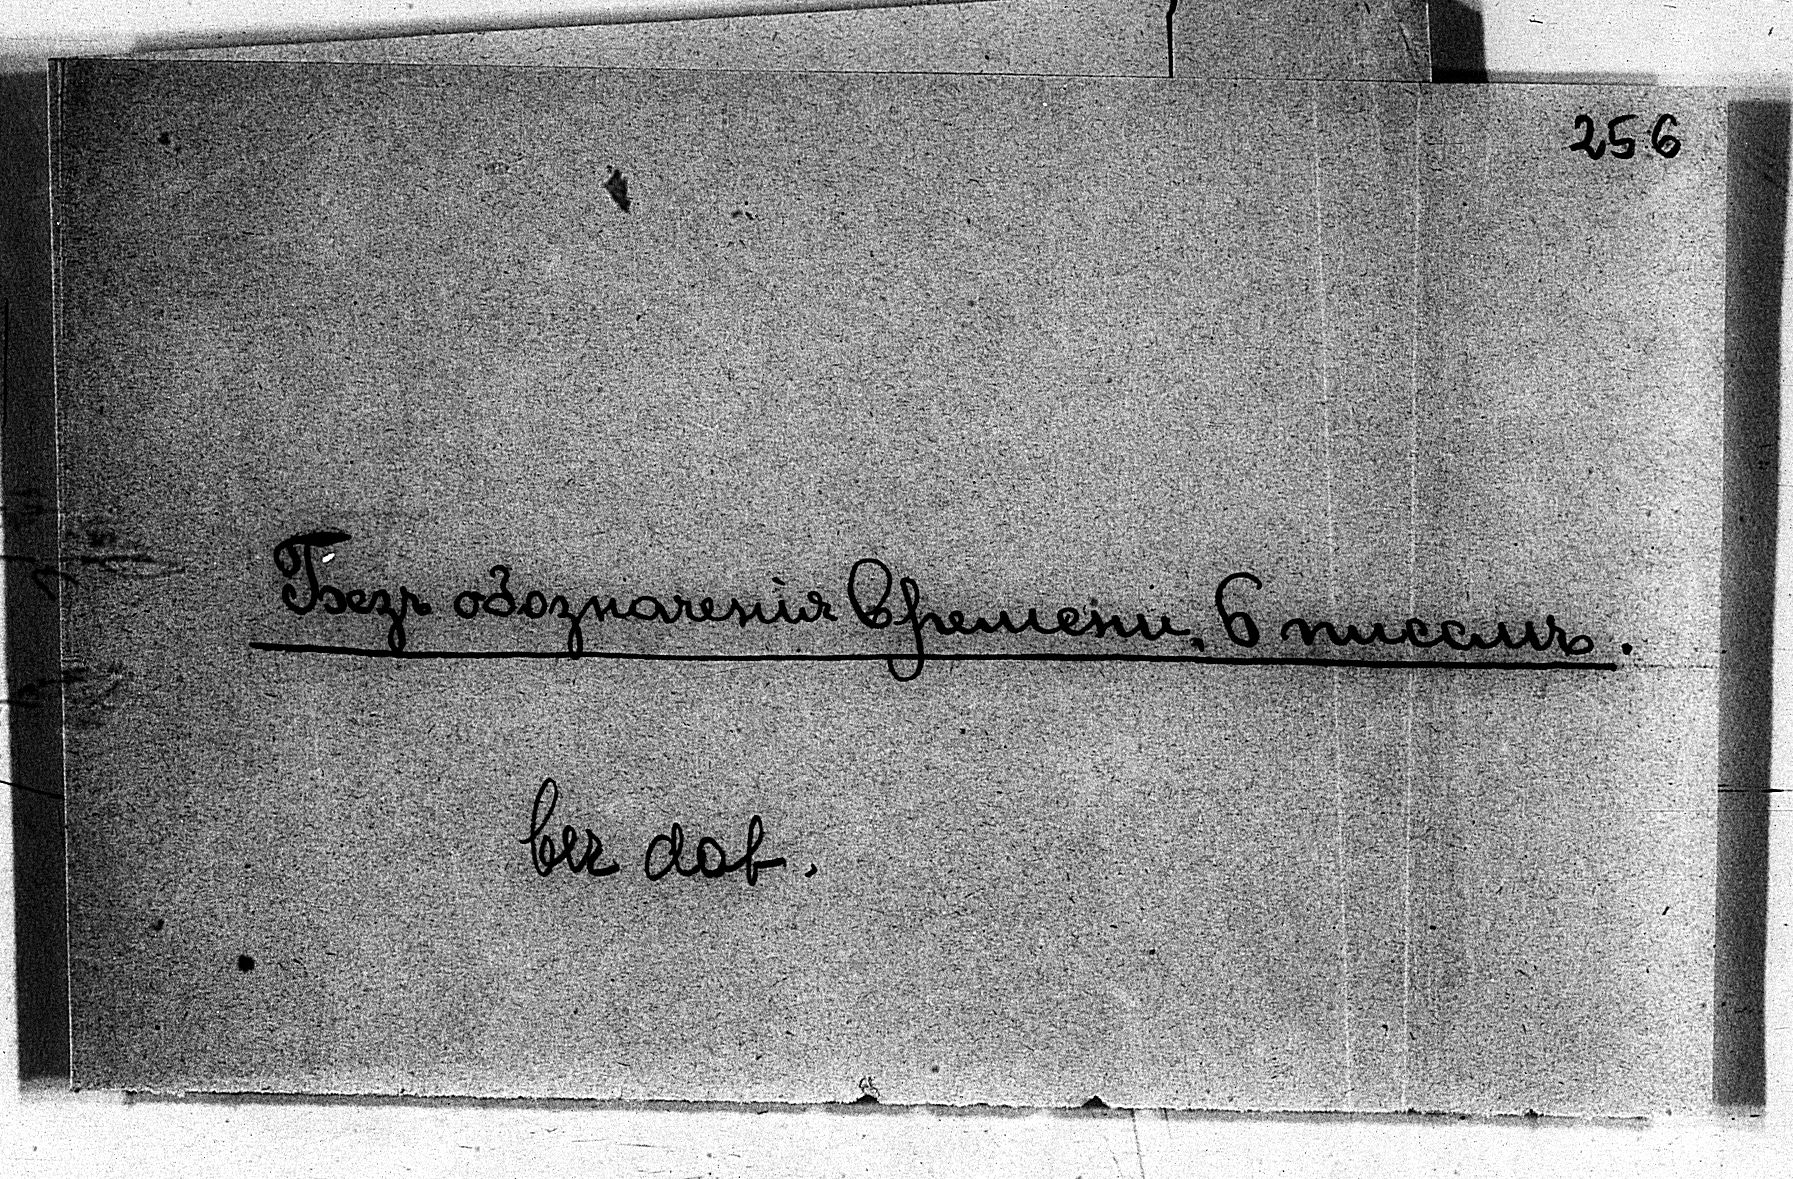 256
Безъ обозначенія времени, 6 писемъ.
bez dat.